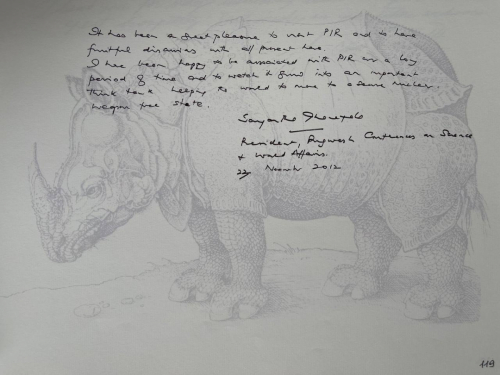 It has been a great pleasure to visit PIR and to have
fruitful discussions with all present here.
I have been happy to be associated with PIR for a long
period of time and to watch it grow into an important
think tank helping the world to move to a secure nuclear
weapon free state.
President, Pugwash Conferences on Science
& World Affairs.
22 November 2012
119